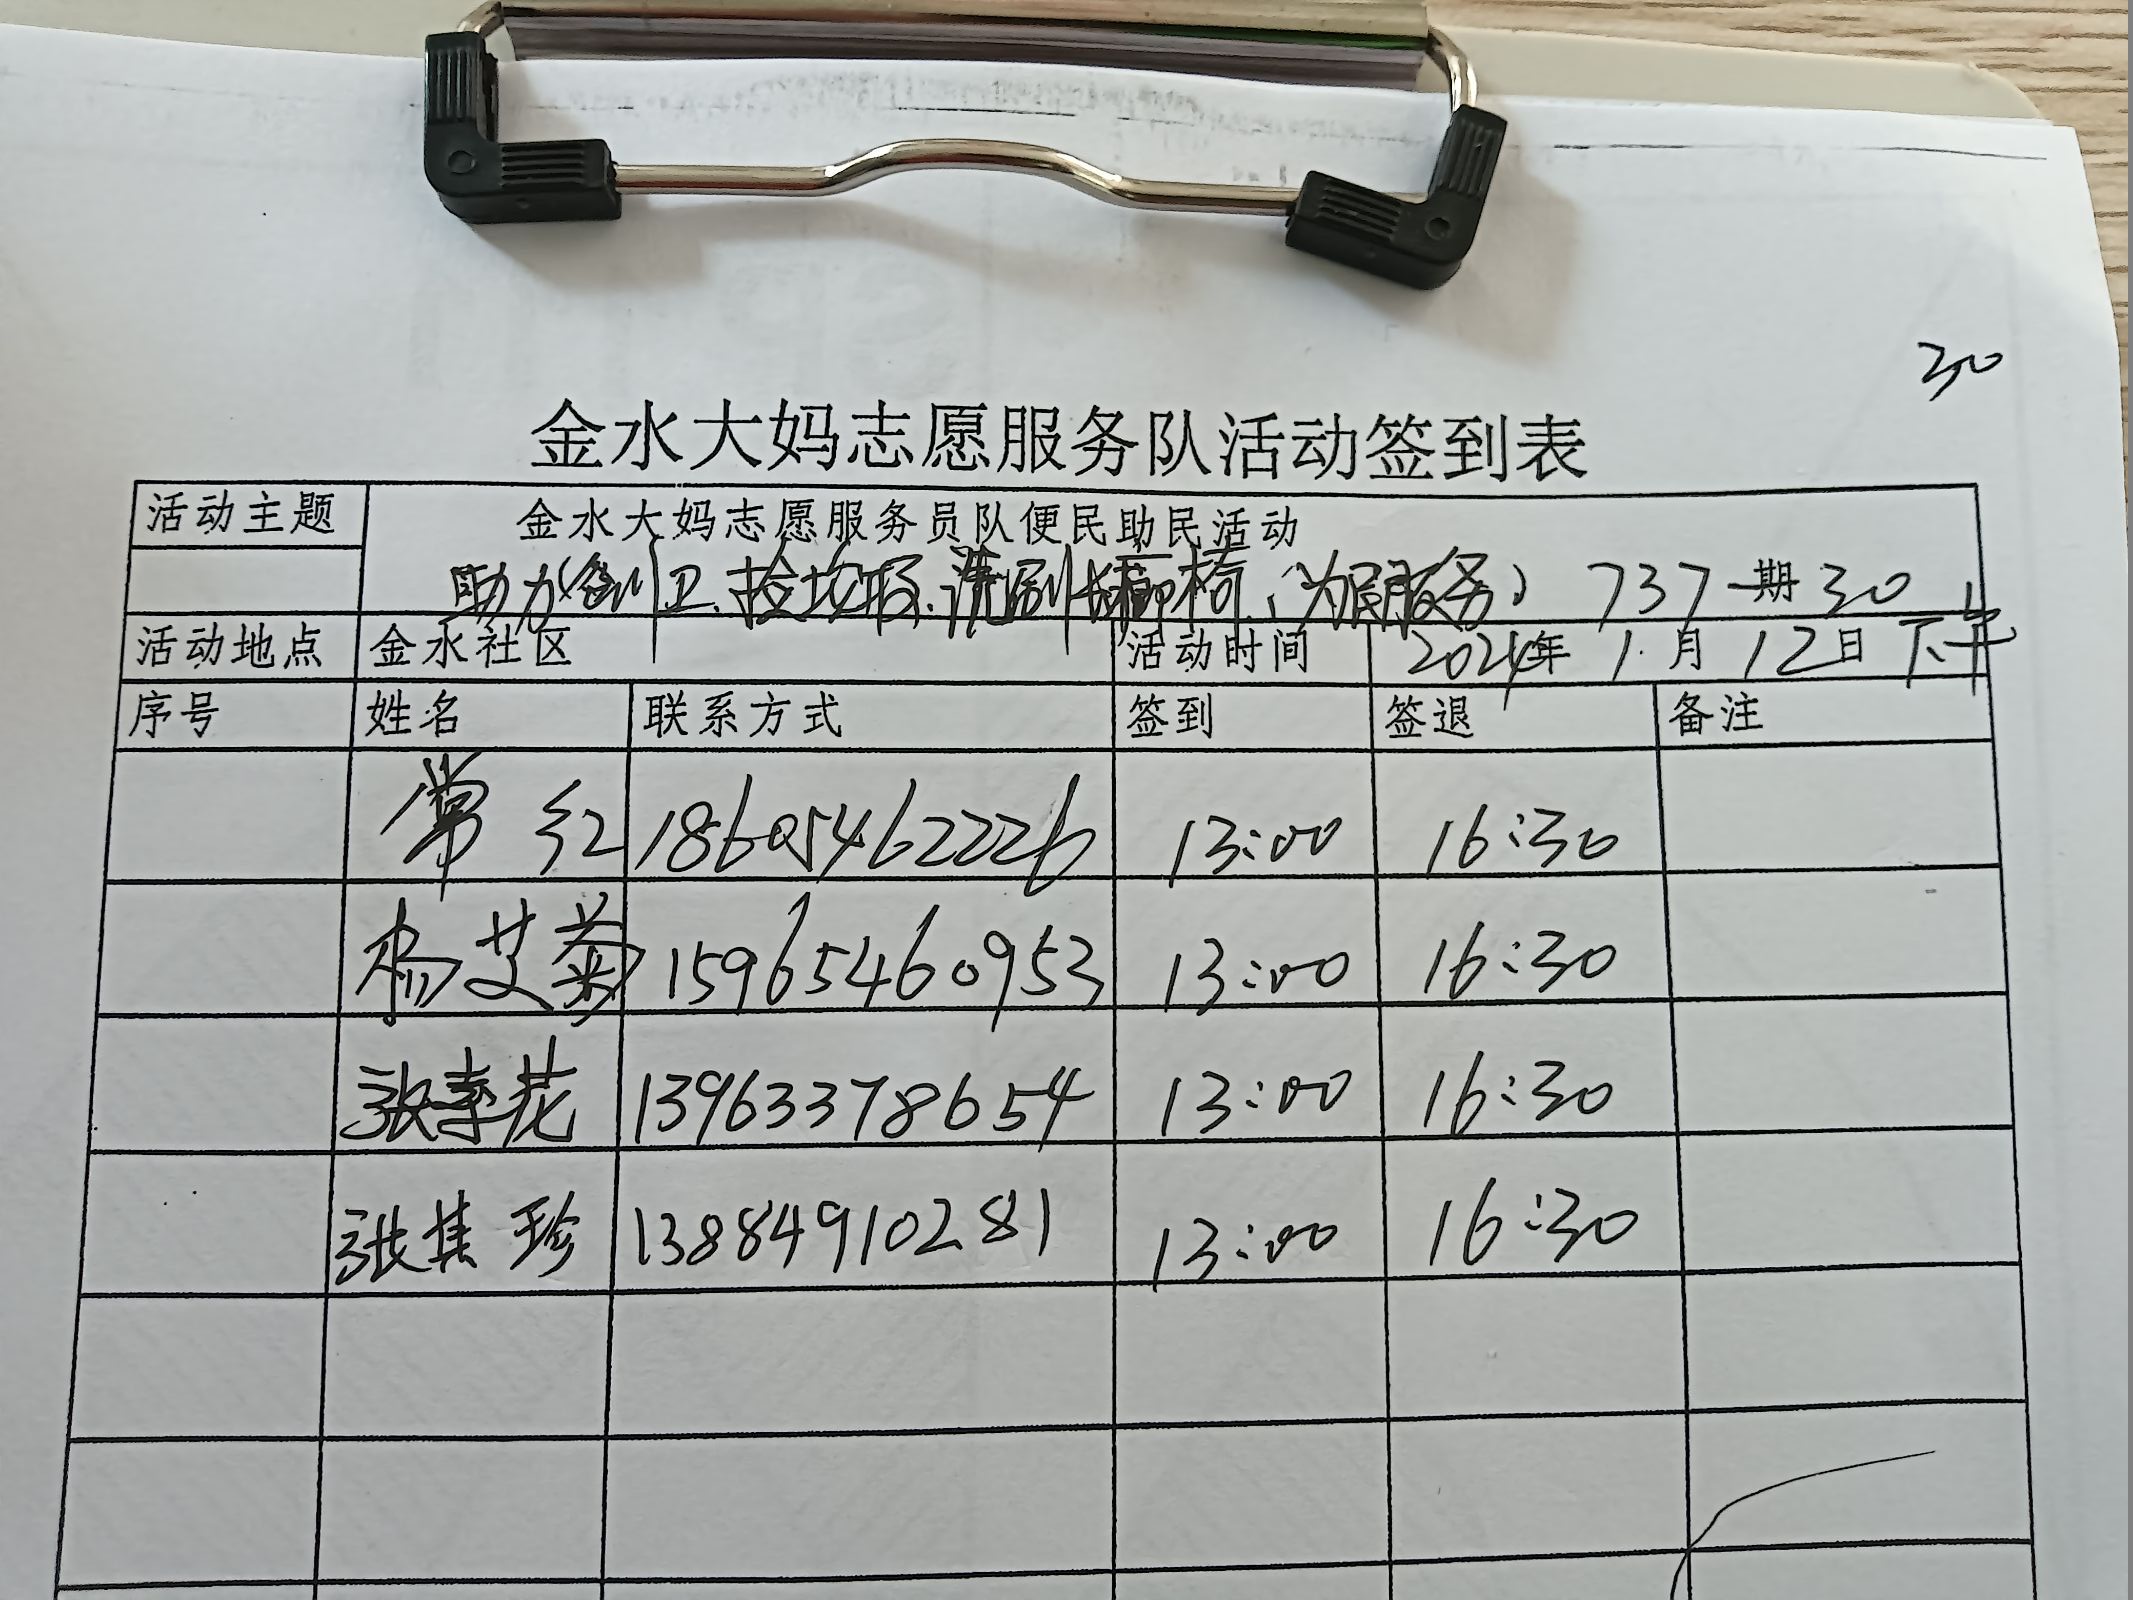 30
金水大妈志愿服务队活动签到表
活动主题 金水大妈志愿服务员队便民助民活动
助力创卫、捡垃圾、洗刷长椅、(为民服务) 737期 30
活动地点 金水社区 活动时间 2024年 1.月 12日 下午
序号 姓名 联系方式 签到 签退 备注
常红 18605462226 13:00 16:30
杨艾菊 15965460953 13:00 16:30
张李花 13963378654 13:00 16:30
张其珍 13884910281 13:00 16:30